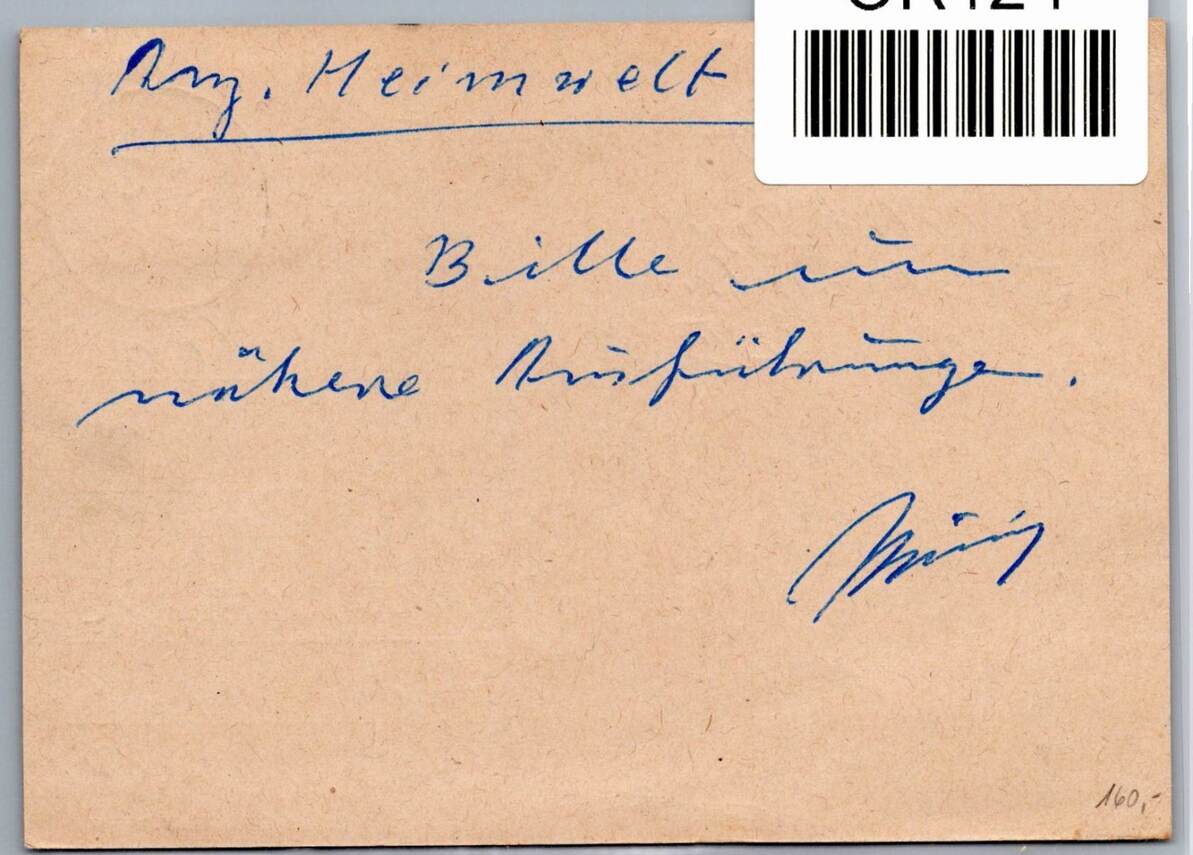 Anz. Heimwelt
Bitte um
nähere Ausführungen.
160,-